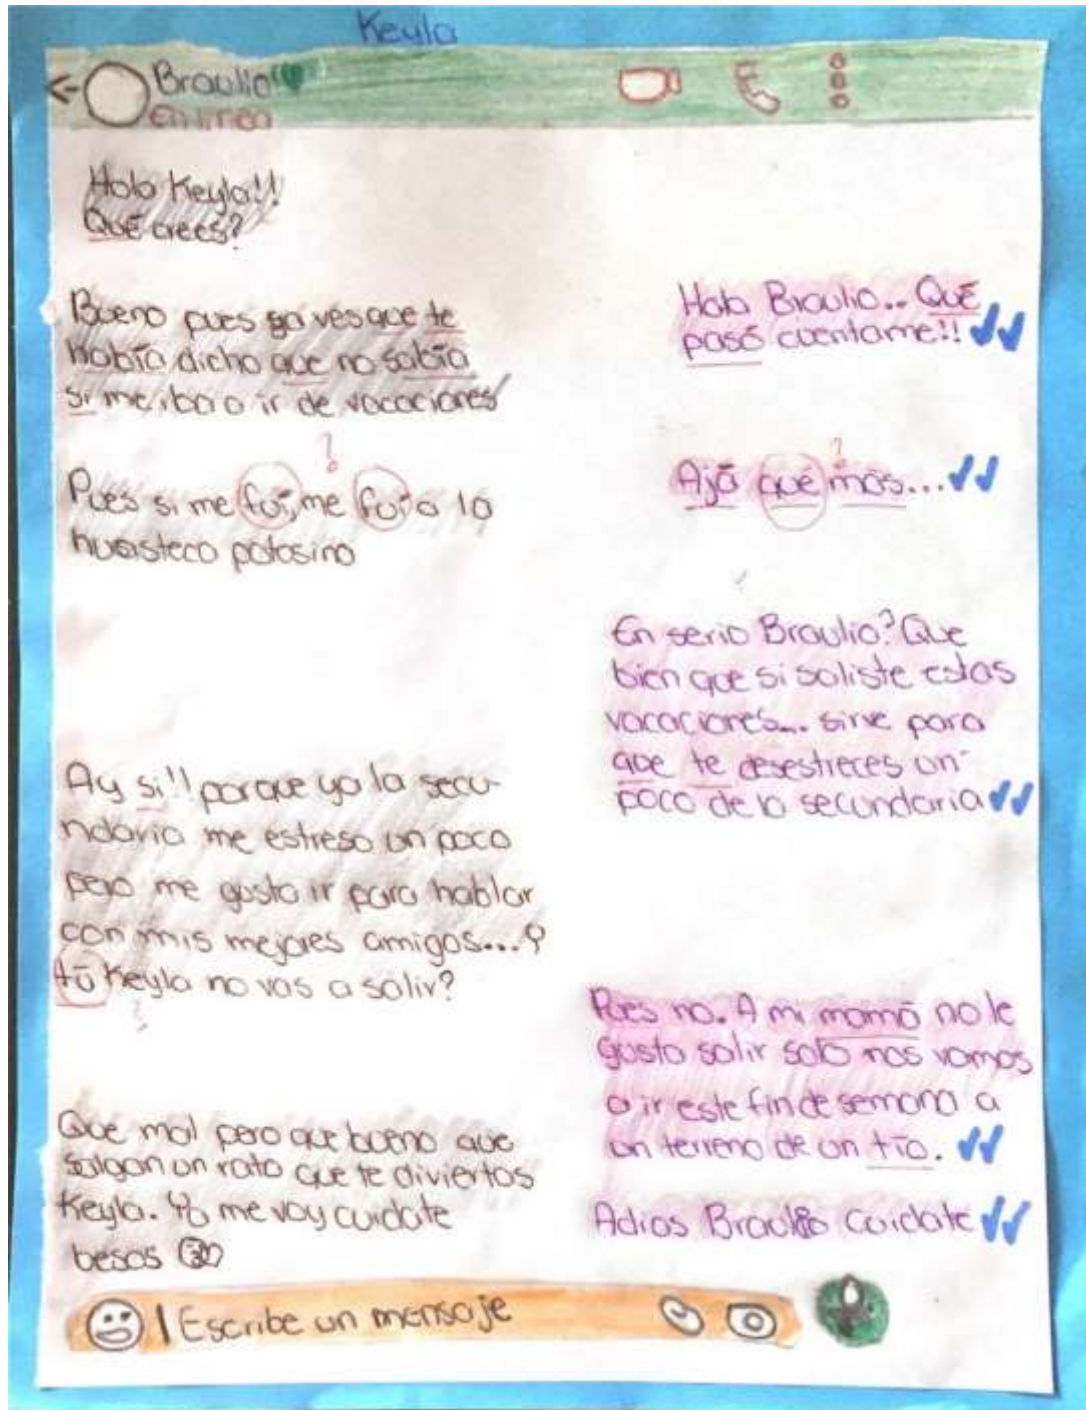 Keyla
Braulio
En linea
Hola Keyla!!
Qué crees?
Hola Braulio.. Qué
pasó cuentame!!
Bueno pues ya ves que te
había dicho que no sabía
si me iba a ir de vacaciones
Ajá qué más...
?
Pues si me fuí, me fuí a la
huasteca potosina
?
En serio Braulio? Que
bien que si saliste estas
vacaciones... sirve para
que te desestreces un
poco de la secundaria
Ay si!! porque ya la secu-
ndaria me estreso un poco
pero me gusta ir para hablar
con mis mejores amigos... Y
tú Keyla no vas a salir?
?
Pues no. A mi mamá no le
gusta salir solo nos vamos
a ir este fin de semana a
un terreno de un tío.
Que mal pero que bueno que
salgan un rato que te diviertas
Keyla. Yo me voy cuidate
besos
Adios Braulio Cuidate
Escribe un mensaje